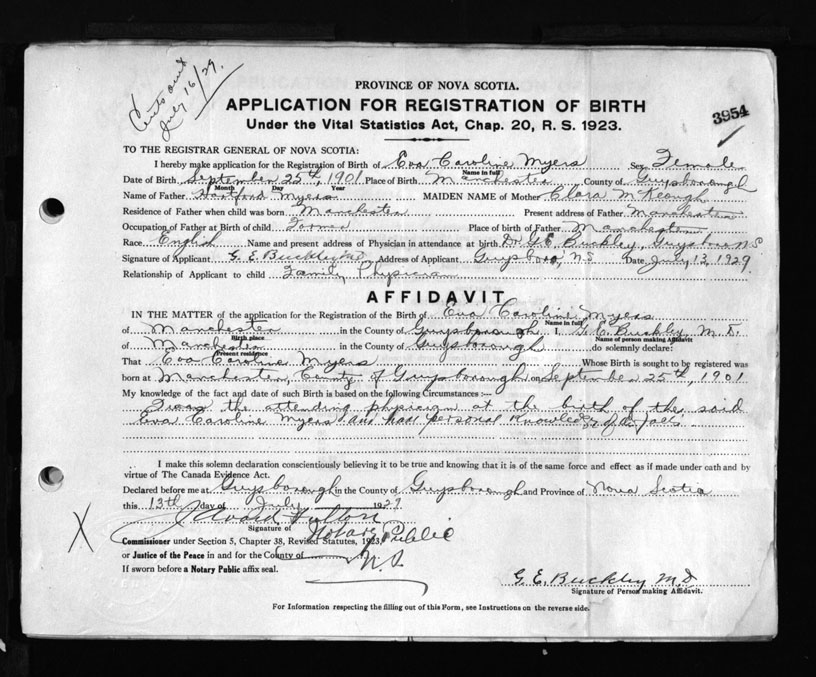 Cert sent
July 16/29.
PROVINCE OF NOVA SCOTIA.
APPLICATION FOR REGISTRATION OF BIRTH
3954
Under the Vital Statistics Act, Chap. 20, R. S. 1923.
TO THE REGISTRAR GENERAL OF NOVA SCOTIA:
I hereby make application for the Registration of Birth of Eva Caroline Myers Sex Female
Name in full
Date of Birth September 25th, 1901 Place of Birth Manchester County of Guysborough
Month Day Year
Name of Father Myers MAIDEN NAME of Mother Clara McKeough
Residence of Father when child was born Manchester Present address of Father Manchester
Occupation of Father at Birth of child Farmer Place of birth of Father Manchester
Race English Name and present address of Physician in attendance at birth Dr G.E. Buckley, Guysboro N.S
Signature of Applicant G. E. Buckley M.D. Address of Applicant Guysboro, N.S Date July 13, 1929
Relationship of Applicant to child Family Physician
AFFIDAVIT
IN THE MATTER of the application for the Registration of the Birth of Eva Caroline Myers
Name in full
of Manchester in the County of Guysborough I, G. E. Buckley, M.D.
Birth place Name of person making Affidavit
of Manchester in the County of Guysborough do solemnly declare:
Present residence
That Eva Caroline Myers Whose Birth is sought to be registered was
born at Manchester, County of Guysborough on September 25th, 1901
My knowledge of the fact and date of such Birth is based on the following Circumstances :—
I was the attending physician at the birth of the said
Eva Caroline Myers and had personal knowledge of the facts
I make this solemn declaration conscientiously believing it to be true and knowing that it is of the same force and effect as if made under oath and by
virtue of The Canada Evidence Act.
Declared before me at Guysborough in the County of Guysborough and Province of Nova Scotia
this 13th day of July 1929
Fulton
Signature of
Notary Public
Commissioner under Section 5, Chapter 38, Revised Statutes, 1923,
or Justice of the Peace in and for the County of
N.S.
If sworn before a Notary Public affix seal.
X
G. E. Buckley M.D
Signature of Person making Affidavit.
For Information respecting the filling out of this Form, see Instructions on the reverse side.